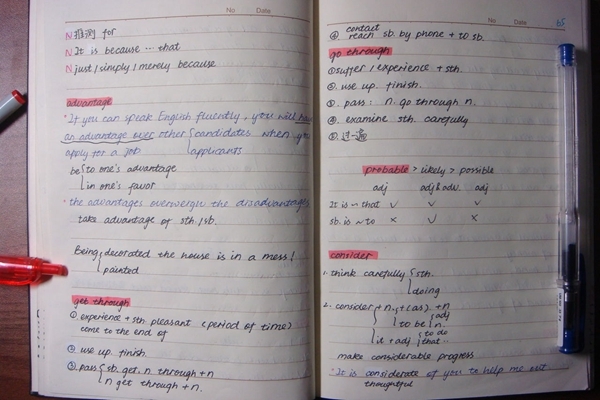 No Date
N 推测 for
N It is because ... that
N just / simply / merely because
advantage
* If you can speak English fluently, you will
an advantage over other { candidates when you
apply for a job applicants
be { to one's advantage
in one's favor
* the advantages overweigh the disadvantages
take advantage of sth / sb.
Being { decorated the house is in a mess!
painted
get through
①. experience + sth. pleasant (period of time)
come to the end of
②. use up. finish.
③. pass { sb. get. n through + n
n get through + n.
No Date 65
④. contact
reach sb. by phone + to sb.
go through
① suffer / experience + sth.
②. use up. finish.
③. pass: n. go through n.
④. examine sth. carefully
⑤. 过一遍
probable > likely > possible
adj adj & adv. adj
It is ~ that √ √ √
sb. is ~ to × √ ×
consider
1. think carefully { sth.
doing
2. consider { + n. + (as) + n
to be { adj
n.
it + adj { to do
that...
make considerable progress
* It is considerate of you to help me out
thoughtful